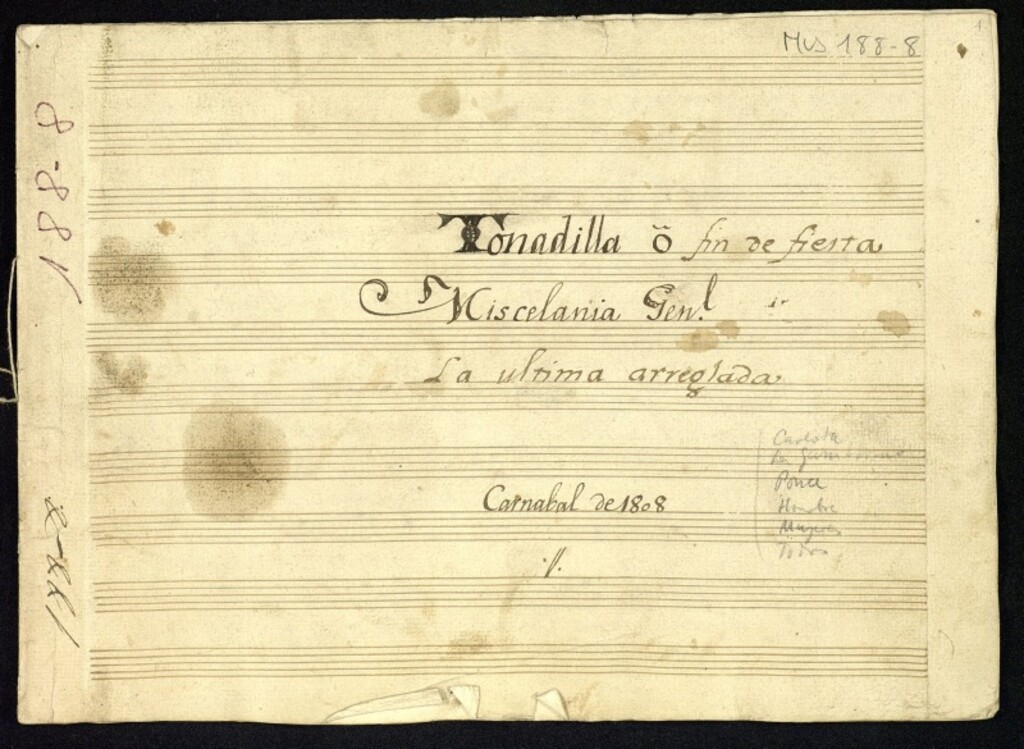 1
Mus 188-8
188-8
Tonadilla ö fin de fiesta
Miscelania Gen.l
La ultima arreglada
Carnabal de 1808
Carlota
La
Ponce
Hombre
Mugeres
Todos
188-8